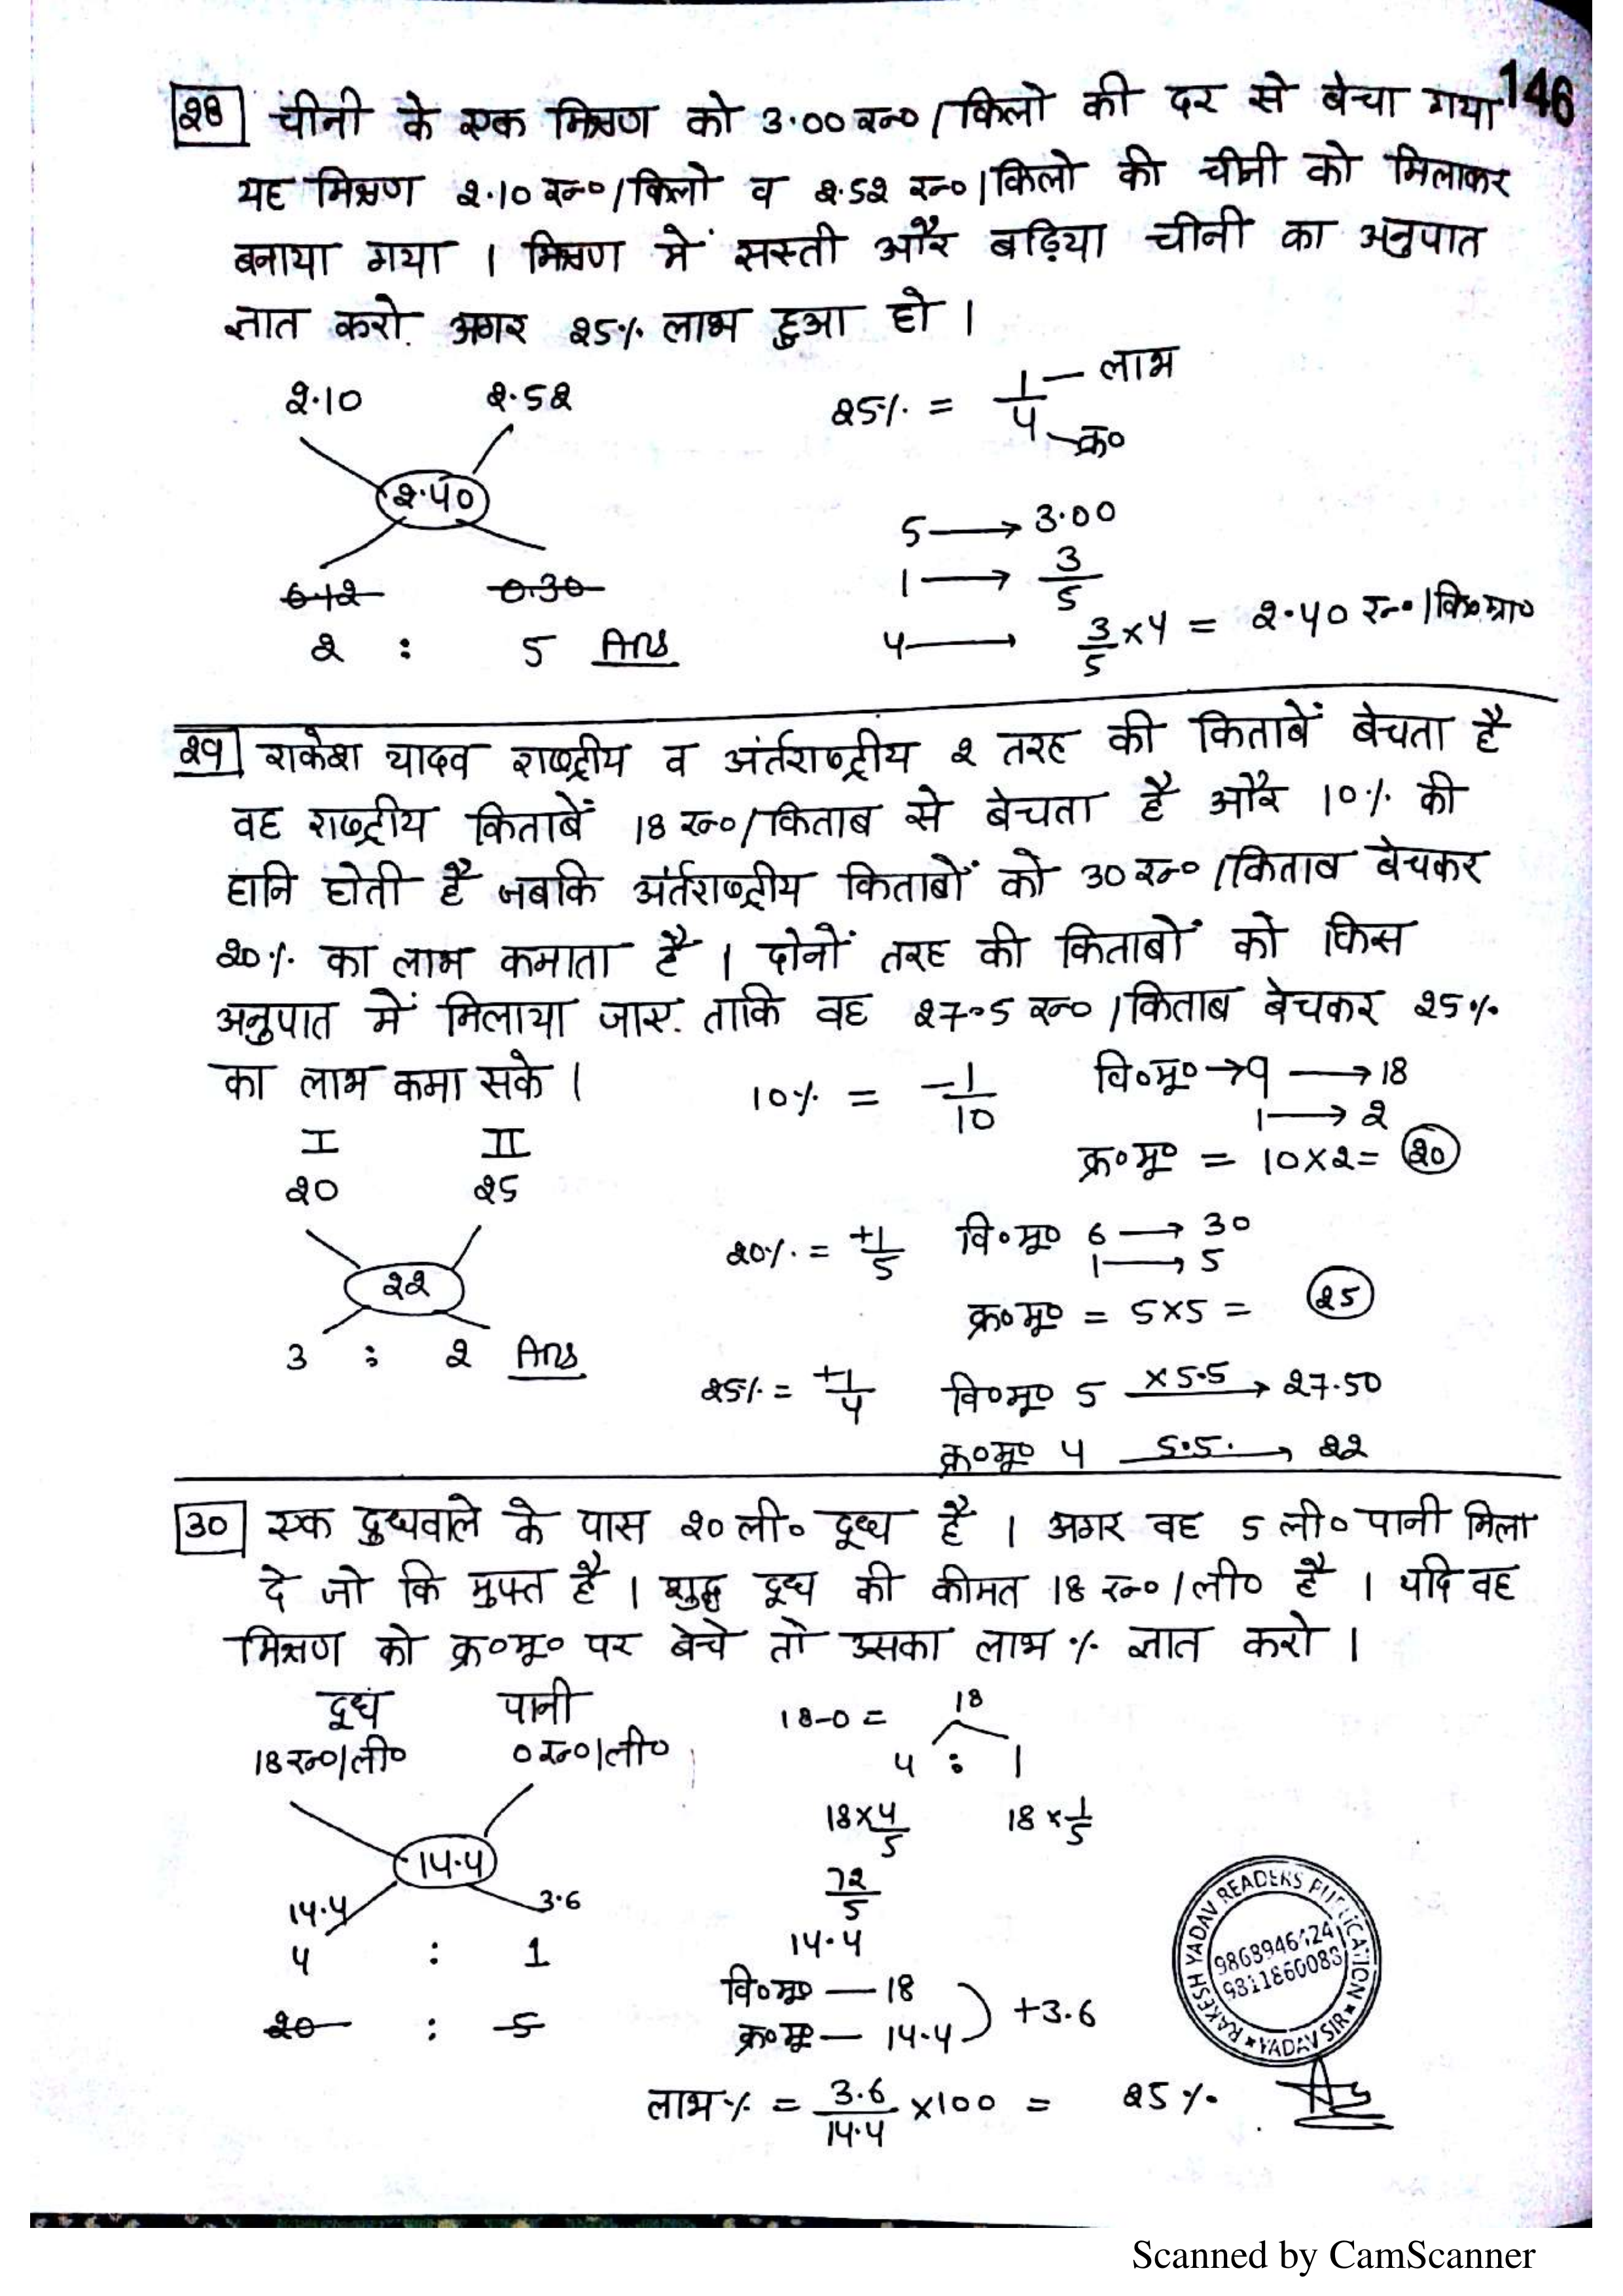 146
28 चीनी के एक मिश्रण को 3.00 रू० / किलो की दर से बेचा गया
यह मिश्रण 2.10 रू० / किलो व 2.52 रू० / किलो की चीनी को मिलाकर
बनाया गया । मिश्रण में सस्ती और बढ़िया चीनी का अनुपात
ज्ञात करो. अगर 25% लाभ हुआ हो ।
2.10 2.52
2.40
0.12 0.30
2 : 5 Ans
25% = 1/4 लाभ क्र०
5 → 3.00
1 → 3/5
4 → 3/5 × 4 = 2.40 रू० / कि०ग्रा०
29 राकेश यादव राष्ट्रीय व अंर्तराष्ट्रीय 2 तरह की किताबें बेचता है
वह राष्ट्रीय किताबें 18 रू० / किताब से बेचता है और 10% की
हानि होती है जबकि अंर्तराष्ट्रीय किताबों को 30 रू० / किताब बेचकर
20% का लाभ कमाता है । दोनों तरह की किताबों को किस
अनुपात में मिलाया जाए. ताकि वह 27.5 रू० / किताब बेचकर 25%
का लाभ कमा सके ।
I II
20 25
22
3 : 2 Ans
10% = -1/10 वि०मू० → 9 → 18
1 → 2
क्र०मू० = 10×2 = 20
20% = +1/5 वि०मू० 6 → 30
1 → 5
क्र०मू० = 5×5 = 25
25% = +1/4 वि०मू० 5 ×5.5 → 27.50
क्र०मू० 4 5.5. → 22
30 एक दुधवाले के पास 20 ली० दूध है । अगर वह 5 ली० पानी मिला
दे जो कि मुफ्त है । शुद्ध दूध की कीमत 18 रू० / ली० है । यदि वह
मिश्रण को क्र०मू० पर बेचे तो उसका लाभ % ज्ञात करो ।
दूध पानी
18 रू०/ली० 0 रू०/ली०
14.4
14.4 3.6
4 : 1
20 : 5
18-0 = 18
4 : 1
18×4/5 18×1/5
72/5
14.4
वि०मू० — 18
क्र०मू० — 14.4 ) +3.6
लाभ % = 3.6/14.4 ×100 = 25 % Ans
RAKESH YADAV READERS PUBLICATION
★ YADAV SIR ★
9868946124
9311860083
Scanned by CamScanner